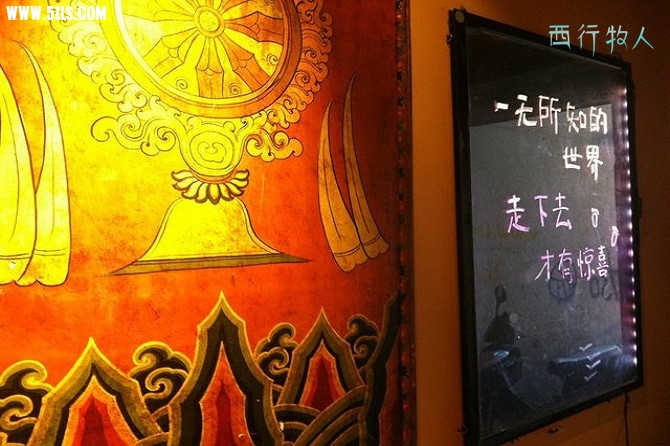 www.5zls.com
西行牧人
一无所知的
世界
走下去
才有惊喜